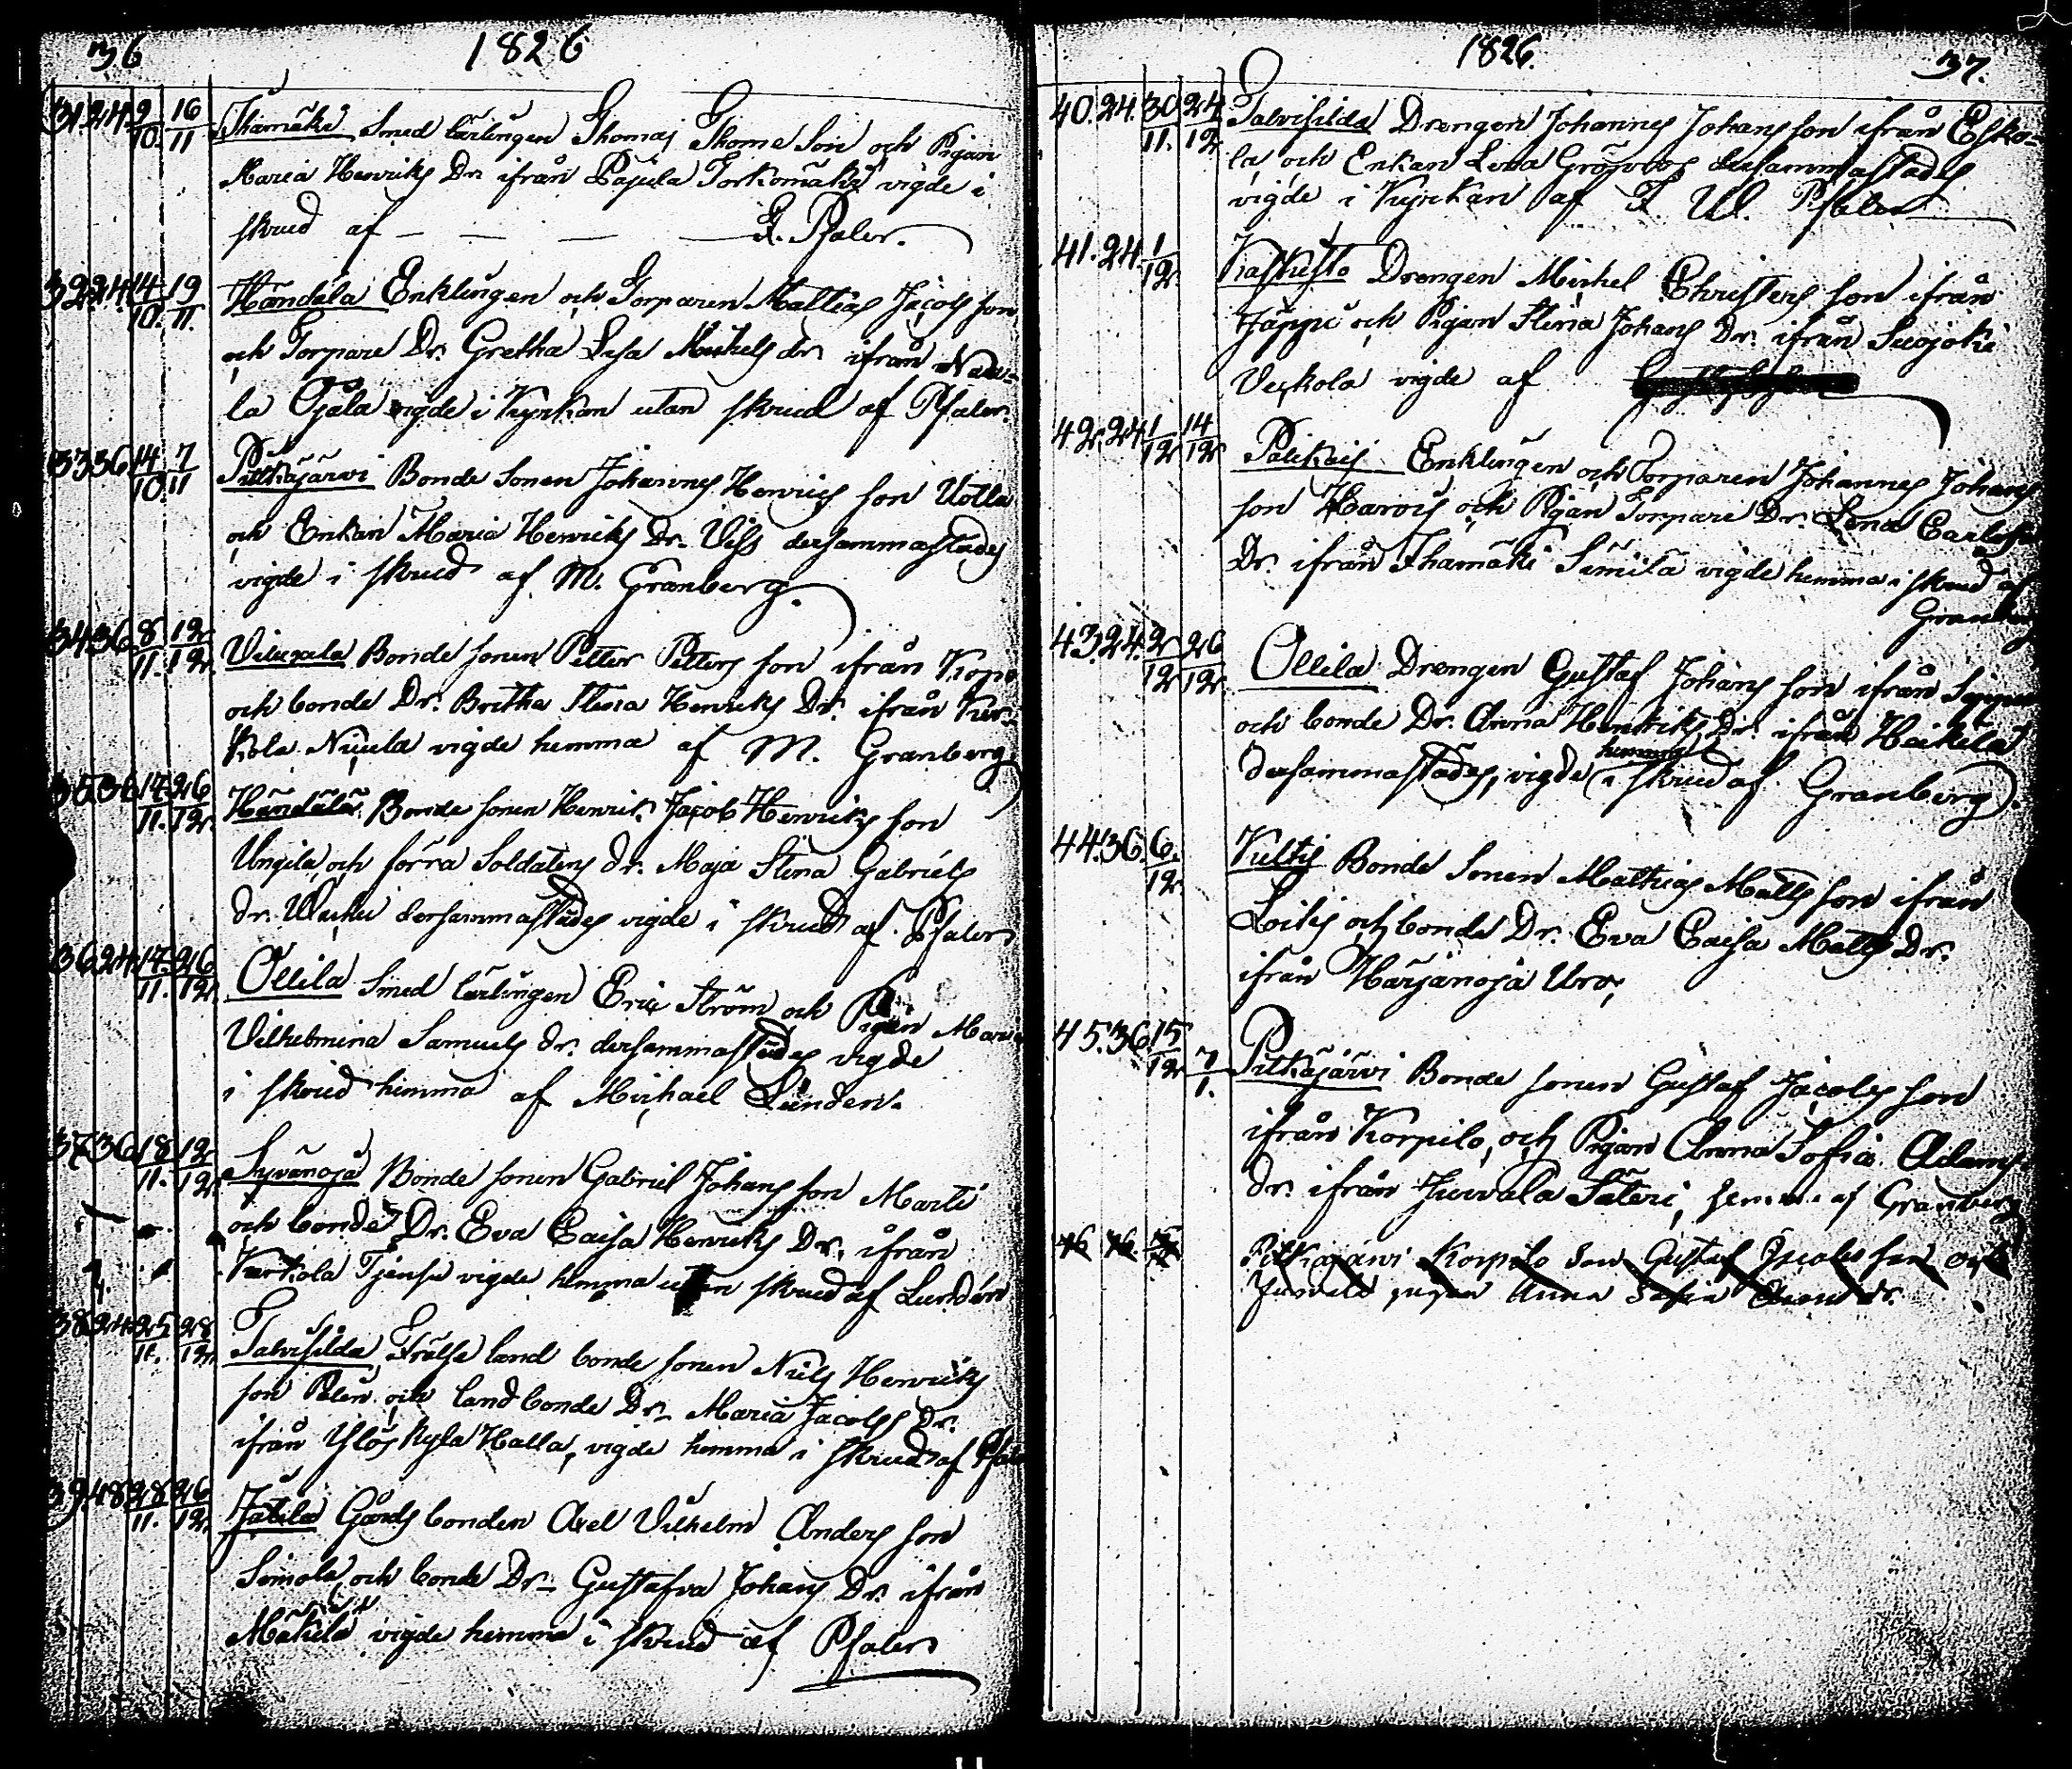 36 1826
31. 24. 9/10. 16/11 Thamäki Smed lärlingen Thomas Thome Son och Pigan
Maria Henriks Dr. ifrån Pajula Torkomäki vigde i
skrud af — — — Pfaler.
32. 24. 14/10. 19/11. Händälä Enklingen och Torparen Mattias Jacobs son
och Torpare Dr. Gretha Lisa Michels dr ifrån
la Ojala vigde i Kyrkan utan skrud af Pfaler.
33 36 14/10 7/11 Pitkäjärvi Bonde Sonen Johannes Henrics son Uotila
och Enkan Maria Henriks Dr. Viss dersammastädes
vigde i skrud af M. Granberg.
34. 36. 8/11. 12/12. Bonde sonen Petter Petters son ifrån
och bonde Dr. Britha Stina Henriks Dr. ifrån Kir-
kola Niuula vigde hemma af M. Granberg
35 36 17/11. 26/12. Händälä Bonde sonen Henrik Jacob Henriks son
Ungila, och förra Soldatens dr. Maja Stina Gabriels
dr. dersammastädes vigde i skrud af Pfaler
36 24 17/11. 26/12. Ollila Smed lärlingen Eric Ström och Pigan Maria
Vilhelmina Samuels dr. dersammastädes vigde
i skrud hemma af Michael Lunden.
37 36 18/11. 12/12. Syvänoja Bonde sonen Gabriel Johans son Marti
och bonde Dr. Eva Caisa Henricks Dr. ifrån
vigde hemma utan skrud af Lundén
38 24 25/11. 28/12. Talvisilda Frälse land bonde sonen Nils Henricks
son och landbonde Dr. Maria Jacobs Dr.
ifrån Ylöskyla Halla, vigde hemma i skrud af
39 48 28/11. 26/12. Jätilä Gårds bonden Axel Vilhelm Anders son
Simola, och bonde Dr. Gustafva Johans Dr. ifrån
Mäkilä vigde hemma i skrud af Pfaler
1826. 37.
40. 24. 30/11. 24/12. Talvisilda Drengen Johannes Johans son ifrån Esko-
la, och Enkan Lena Grönroos dersammastades
vigde i Kyrkan af F. Ul. Pfaler
41. 24. 1/12. Kaskisto Drengen Michel Christers son ifrån
Jäppi och Pigan Stina Johans Dr. ifrån Suojoki
Veskola vigde af
42. 24 1/12 14/12 Palikais Enklingen och Torparen Johannes Johans
son Harois och Pigan Torpare Dr. Lena Carls
Dr. ifrån Thamäki Simila vigde hemma i skrud af
Granberg
43. 24. 2/12 26/12 Ollila Drengen Gustaf Johans son ifrån
och bonde Dr. Anna Henriks Dr. ifrån Heikila
hemma
dersammastades, vigde i skrud af Granberg.
44. 36. 6./12. Kultis Bonde Sonen Mathias Matts son ifrån
Loitis och bonde Dr. Eva Caisa Matts Dr.
ifrån Harjanoja Uro,
45. 36. 15/12 7/1. Pitkäjärvi Bonde sonen Gustaf Jacobs son
ifrån Korpilo, och Pigan Anna Sofia Adams
dr. ifrån Juvvala Säteri, hemma af Granberg
46 Pitkäjärvi Korpilo Son Gustaf Jacobs son och
pigan Anna Sofia dr.